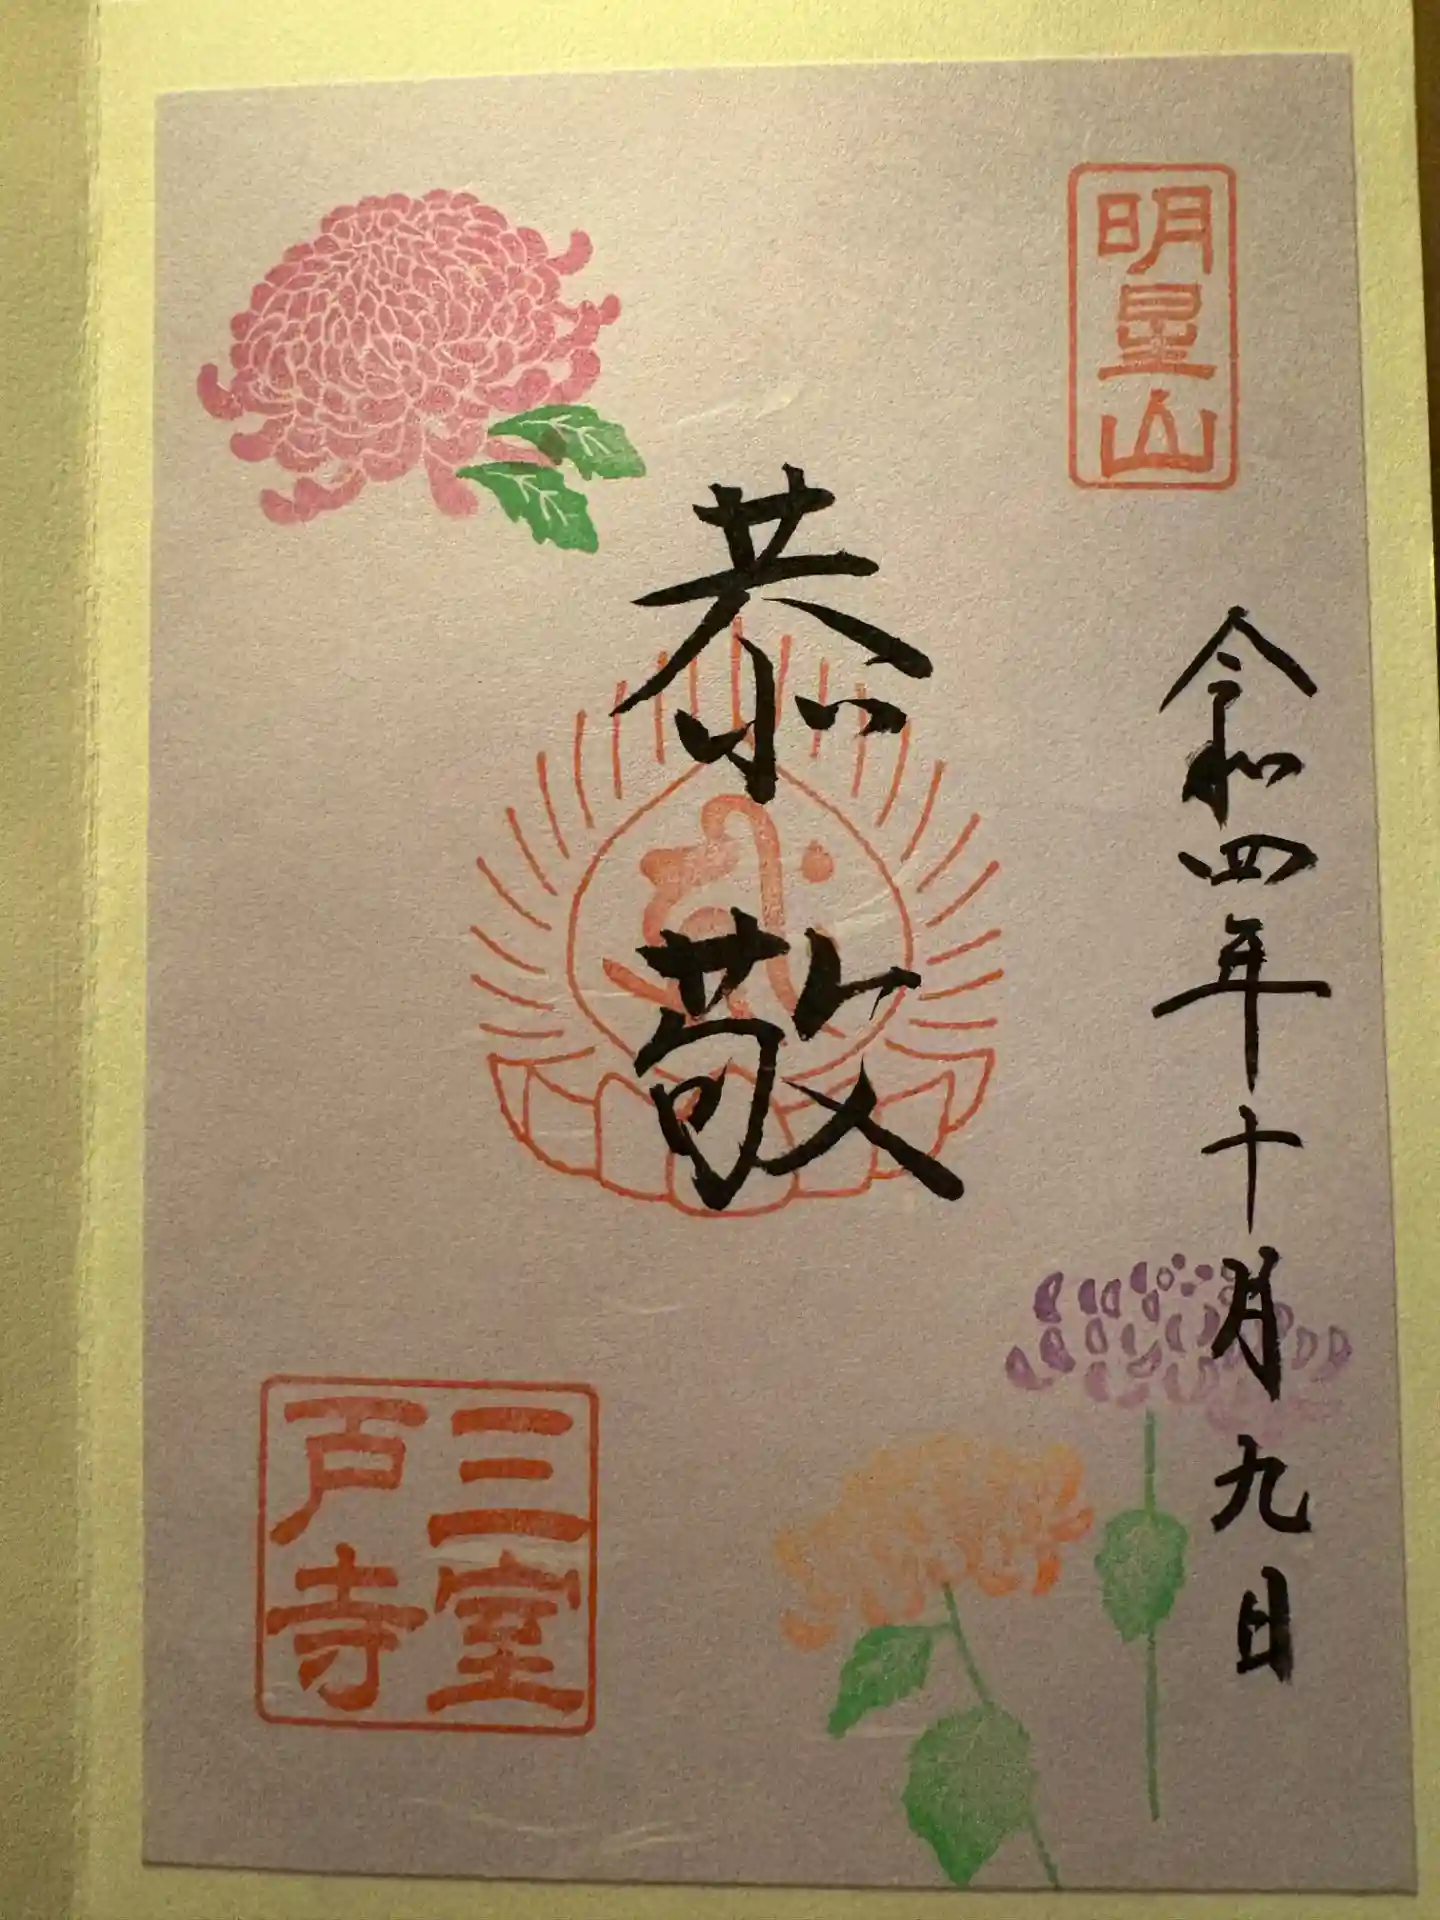 明星山
令和四年十月九日
恭敬
三室
戸寺